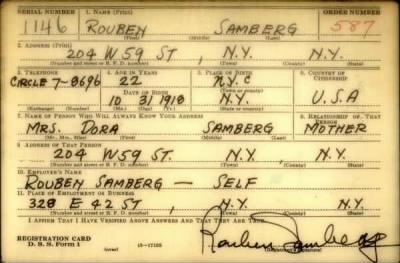 SERIAL NUMBER 1. NAME (Print) ORDER NUMBER
1146 ROUBEN SAMBERG 587
(First) (Middle) (Last)
2. ADDRESS (Print)
204 W 59 ST, N.Y. N.Y.
(Number and street or R. F. D. number) (Town) (County) (State)
3. TELEPHONE 4. AGE IN YEARS 5. PLACE OF BIRTH 6. COUNTRY OF CITIZENSHIP
CIRCLE 7-8696 22 N.Y.C
DATE OF BIRTH (Town or county)
10 31 1918 N.Y. U.S.A
(Exchange) (Number) (Mo.) (Day) (Yr.) (State or country)
7. NAME OF PERSON WHO WILL ALWAYS KNOW YOUR ADDRESS 8. RELATIONSHIP OF THAT PERSON
MRS. DORA SAMBERG MOTHER
(Mr., Mrs., Miss) (First) (Middle) (Last)
9. ADDRESS OF THAT PERSON
204 W 59 ST. N.Y. N.Y.
(Number and street or R. F. D. number) (Town) (County) (State)
10. EMPLOYER'S NAME
ROUBEN SAMBERG — SELF
11. PLACE OF EMPLOYMENT OR BUSINESS
328 E 42 ST, N.Y. N.Y.
(Number and street or R. F. D. number) (Town) (County) (State)
I AFFIRM THAT I HAVE VERIFIED ABOVE ANSWERS AND THAT THEY ARE TRUE.
REGISTRATION CARD
D. S. S. Form 1 (over) Rouben Samberg